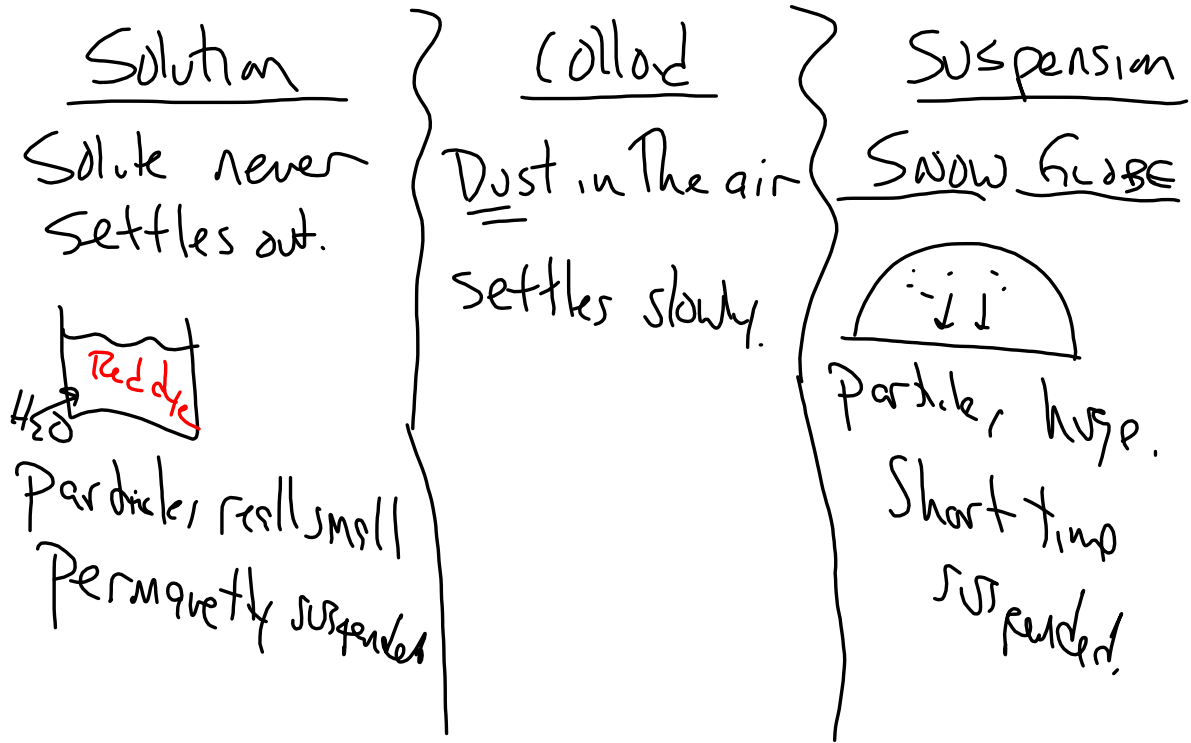 Solution
Solute never
settles out.
Red dye
H2O
Particles really small
Permanetly suspended
Colloid
Dust in the air
settles slowly.
Suspension
SNOW GLOBE
Particles huge.
Short time
suspended.